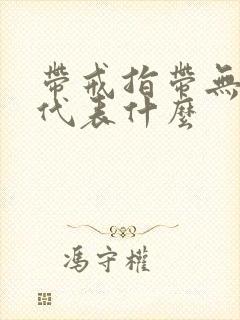 帶戒指帶無
代表什麼
馮守權